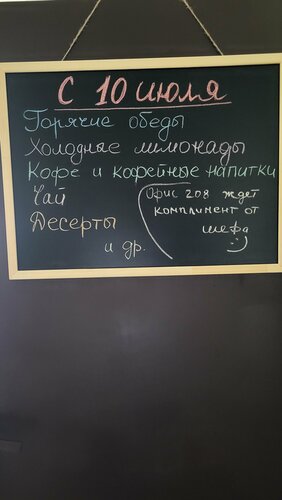 С 10 июля
Горячие обеды
Холодные лимонады
Кофе и кофейные напитки
Чай
Десерты
и др.
Офис 208 ждет
комплимент от
шефа :)